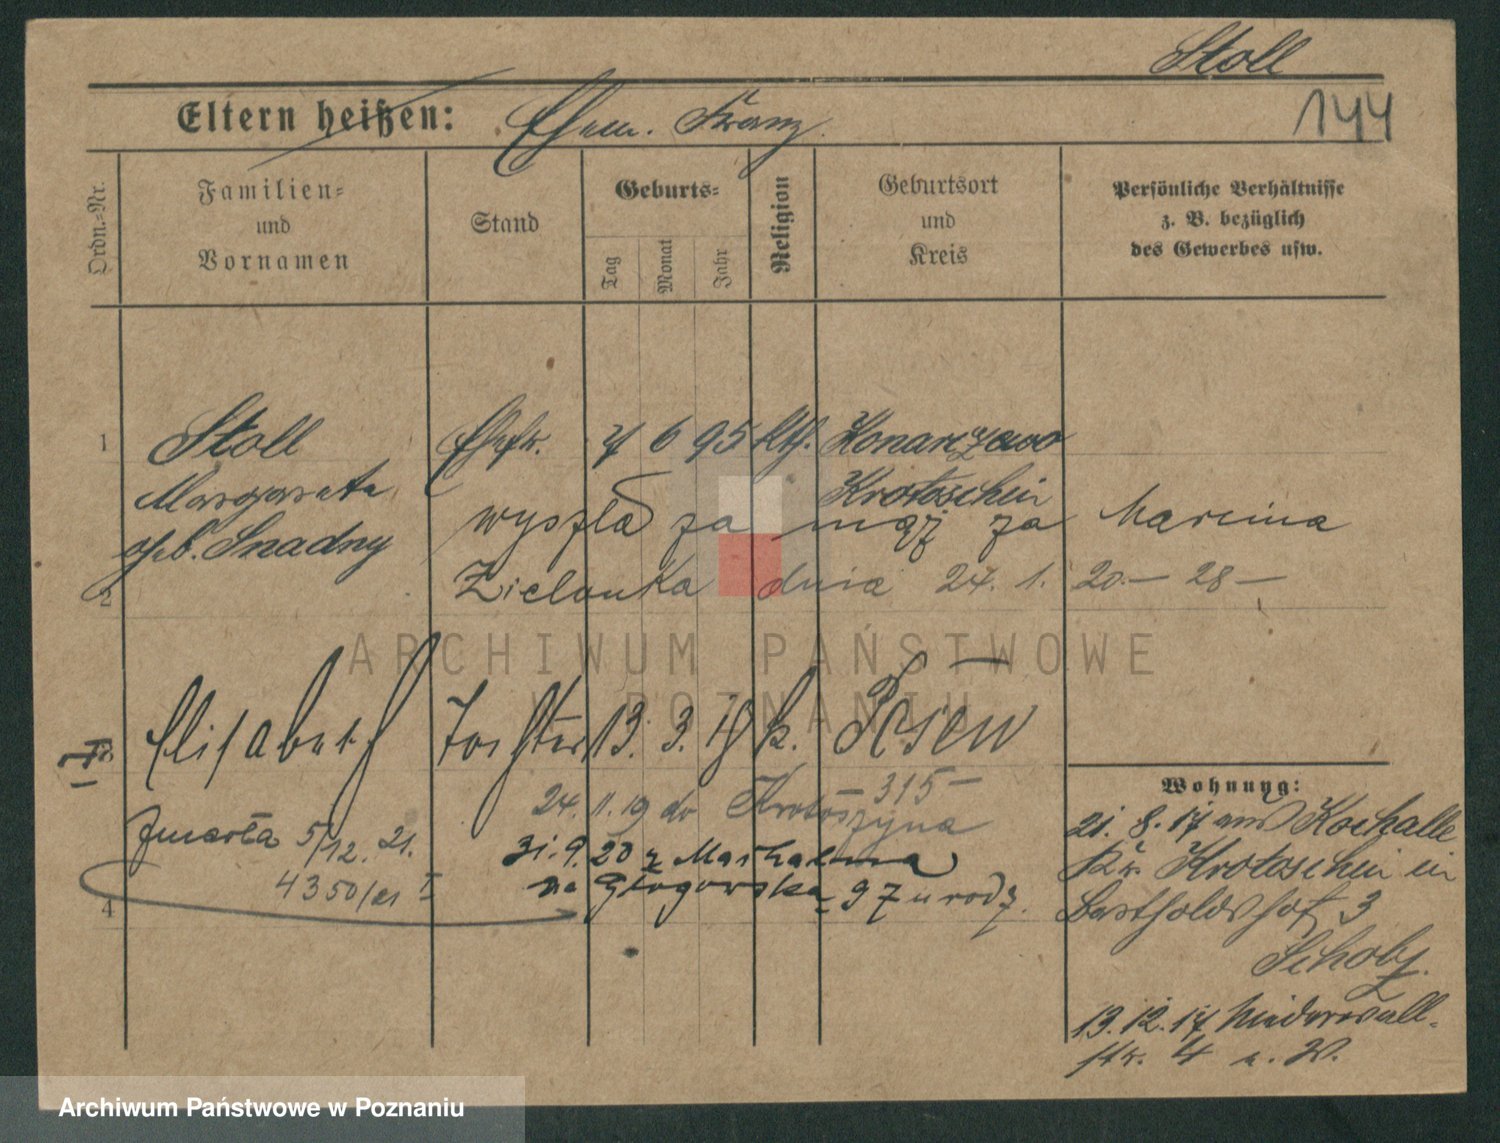 Stoll
Eltern heißen: Ehem. Franz.
144
Ordn.=Nr.
Familien=
und
Vornamen
Stand
Geburts=
Tag
Monat
Jahr
Religion
Geburtsort
und
Kreis
Persönliche Verhältnisse
z. B. bezüglich
des Gewerbes usw.
1 Stoll Ehefr. 7 6 95 kth. Konarzewo
Margareta Krotoschin
geb. Snadny
wyszła za mąż za Marcina
2 Zielonka dnia 24. 1. 20.— 28—
3 Elisabeth Tochter 13. 3. 19 k. Posen
315—
24. 11. 19 do Krotoszyna
zmarła 5/12. 21.
31. 9. 20 z
4350/21 I na Głogowska 97 u rodz.
4
Wohnung:
21. 8. 17 aus Kochalle
Kr. Krotoschin in
Bartholdshof 3
Scholz.
13. 12. 17 Niederwall-
str. 4 b. W.
ARCHIWUM PAŃSTWOWE
W POZNANIU
Archiwum Państwowe w Poznaniu